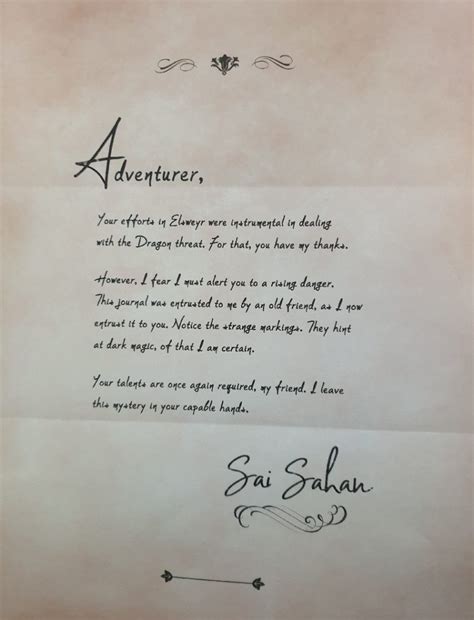 Adventurer,
Your efforts in Elsweyr were instrumental in dealing
with the Dragon threat. For that, you have my thanks.
However, I fear I must alert you to a rising danger.
This journal was entrusted to me by an old friend, as I now
entrust it to you. Notice the strange markings. They hint
at dark magic, of that I am certain.
Your talents are once again required, my friend. I leave
this mystery in your capable hands.
Sai Sahan